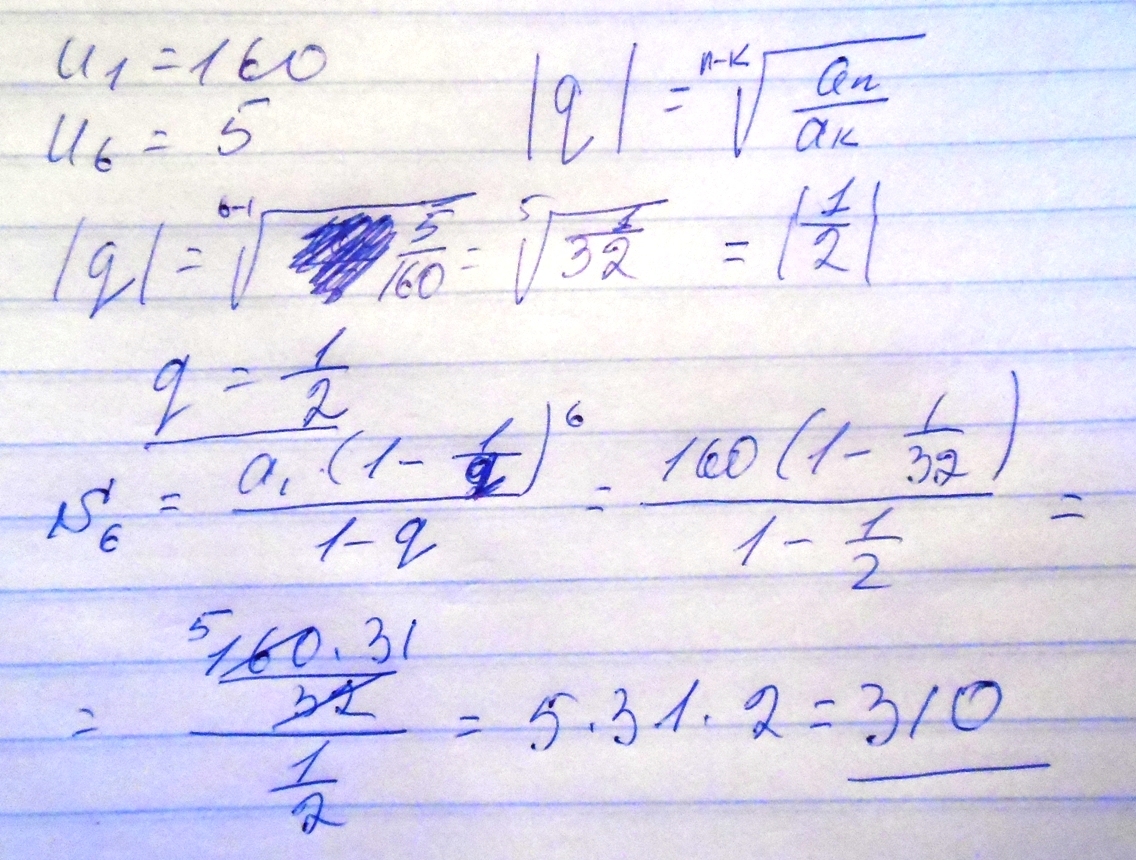 u₁ = 160
u₆ = 5
|q| = ⁿ⁻ᵏ√(aₙ/aₖ)
|q| = ⁶⁻¹√(5/160) = ⁵√(1/32) = |1/2|
q = 1/2
S₆ = a₁·(1 - 1/q)⁶ / (1 - q) = 160(1 - 1/32) / (1 - 1/2) =
= (⁵160·31/32) / (1/2) = 5·31·2 = 310